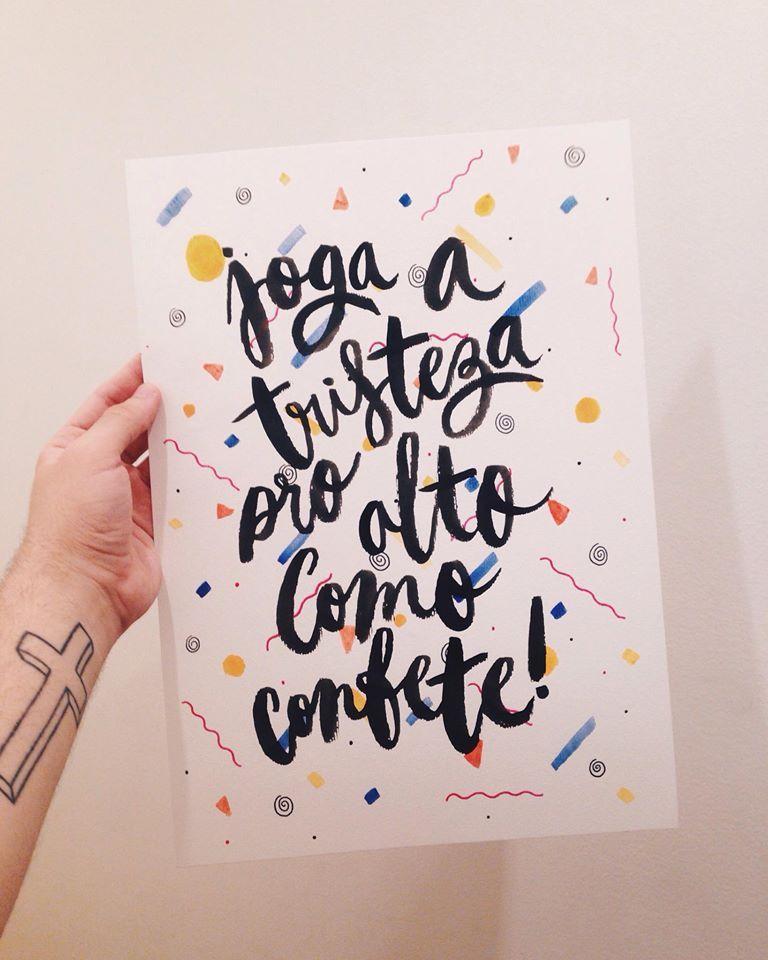 joga a
tristeza
pro alto
como
confete!